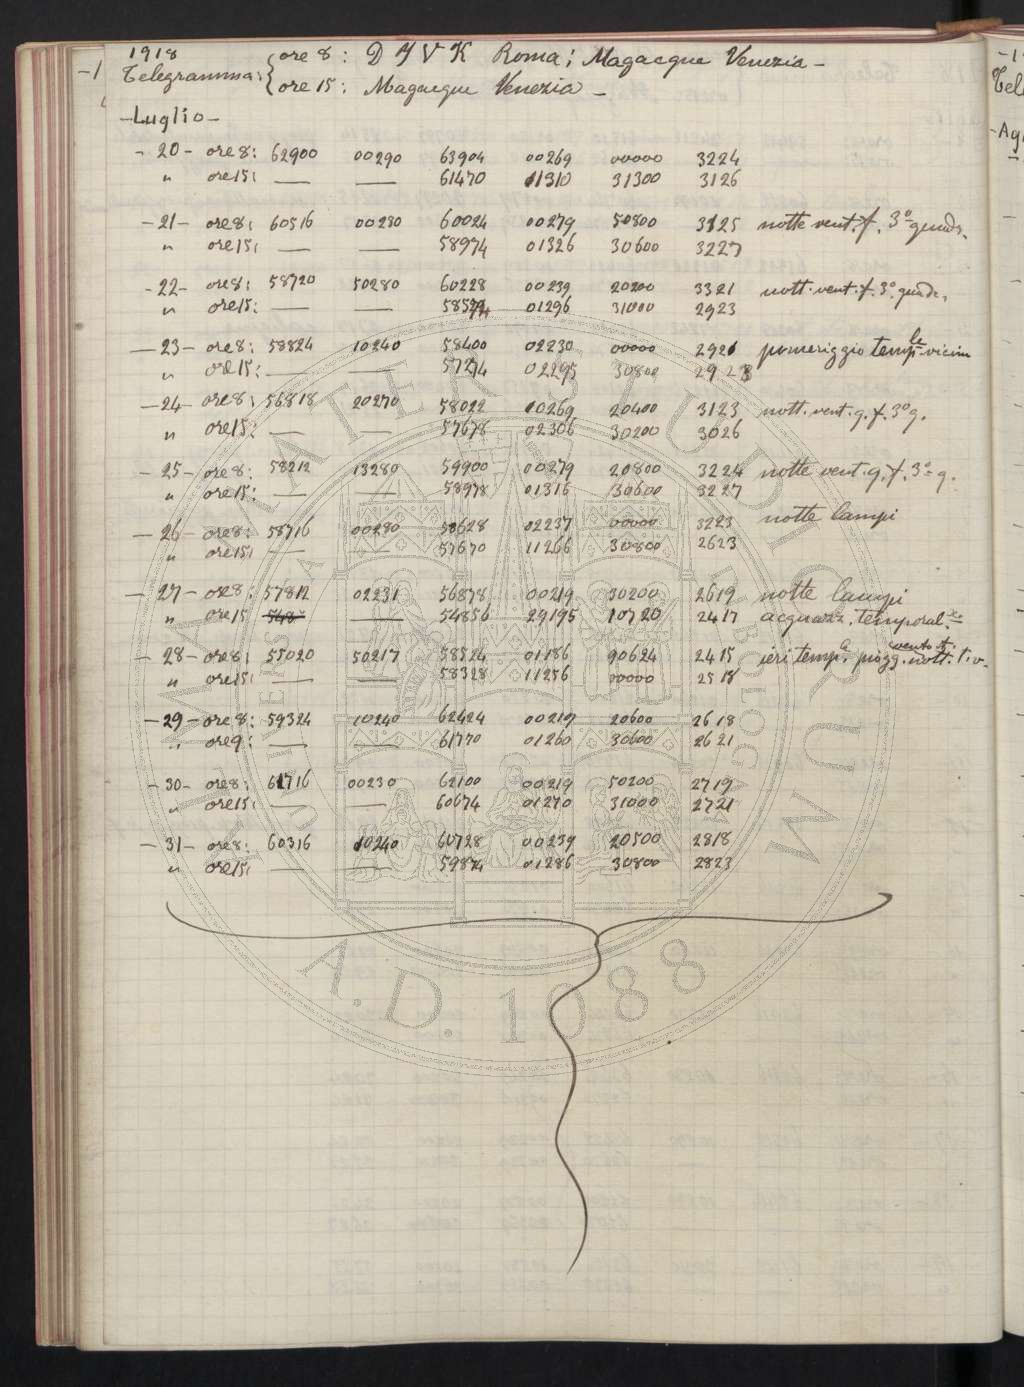 1918
Telegramma: ore 8: D Y V K Roma; Magacque Venezia -
ore 15: Magacque Venezia -
- Luglio -
- 20 - ore 8: 62900 00290 63904 00269 00000 3224
" ore 15: — — 61470 01310 31300 3126
- 21 - ore 8: 60516 00230 60024 00279 50800 3125 notte vent. f. 3° quadr.
" ore 15: — — 58974 01326 30600 3227
- 22 - ore 8: 58720 50280 60228 00239 20200 3321 nott. vent. f. 3° quadr.
" ore 15: — — 58574 01296 31000 2923
- 23 - ore 8: 58824 10240 58400 02230 00000 2926 pomeriggio temp.le vicini
" ore 15: — — 57274 02295 30800 2923
- 24 - ore 8: 56818 20270 58022 10269 20400 3123 nott. vent. g. f. 3° g.
" ore 15: — — 57678 02306 30200 3026
- 25 - ore 8: 58212 13280 59900 00279 20800 3224 notte vent. g. f. 3° g.
" ore 15: — — 58978 01316 30600 3227
- 26 - ore 8: 58716 00280 58628 02237 00000 3223 notte lampi
" ore 15: — — 57670 11266 30800 2623
- 27 - ore 8: 57812 02231 56878 00219 30200 2619 notte lampi
" ore 15 — 54856 29195 10720 2417 acquazz. temporal.
- 28 - ore 8: 55020 50217 58524 01186 90624 2415 ieri temp.le piogg. nott.
" ore 15: — — 58328 11256 00000 2518
- 29 - ore 8: 59324 10240 62424 00219 20600 2618
" ore 9: — — 61770 01260 30600 2621
- 30 - ore 8: 61716 00230 62100 00219 50200 2719
" ore 15: — — 60674 01270 31000 2721
- 31 - ore 8: 60316 10240 60728 00239 20500 2818
" ore 15: — — 59874 01286 30800 2823
ALMA MATER STUDIORUM
A.D. 1088